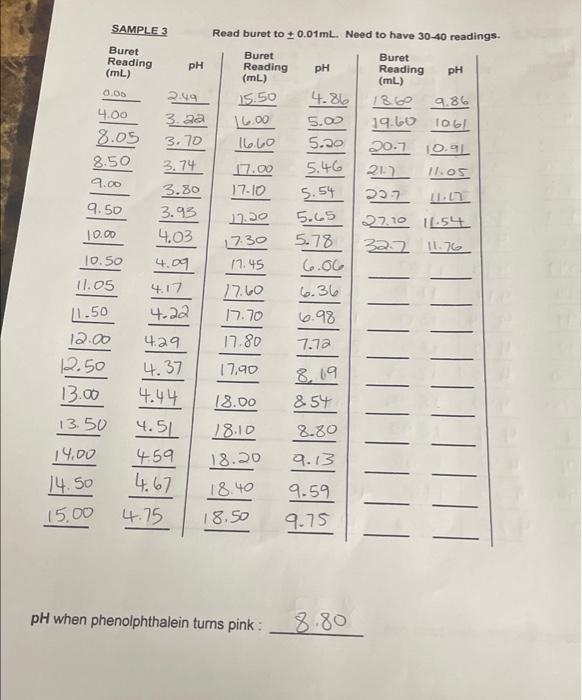 SAMPLE 3 Read buret to ± 0.01mL. Need to have 30-40 readings.
Buret Buret Buret
Reading pH Reading pH Reading pH
(mL) (mL) (mL)
0.00 2.49 15.50 4.86 18.60 9.86
4.00 3.22 16.00 5.00 19.60 10.61
8.05 3.70 16.60 5.20 20.7 10.91
8.50 3.74 17.00 5.46 21.7 11.05
9.00 3.80 17.10 5.54 22.7 11.17
9.50 3.93 17.20 5.65 27.70 11.54
10.00 4.03 17.30 5.78 32.7 11.76
10.50 4.09 17.45 6.06
11.05 4.17 17.60 6.36
11.50 4.22 17.70 6.98
12.00 4.29 17.80 7.72
12.50 4.37 17.90 8.19
13.00 4.44 18.00 8.54
13.50 4.51 18.10 8.80
14.00 4.59 18.20 9.13
14.50 4.67 18.40 9.59
15.00 4.75 18.50 9.75
pH when phenolphthalein turns pink : 8.80